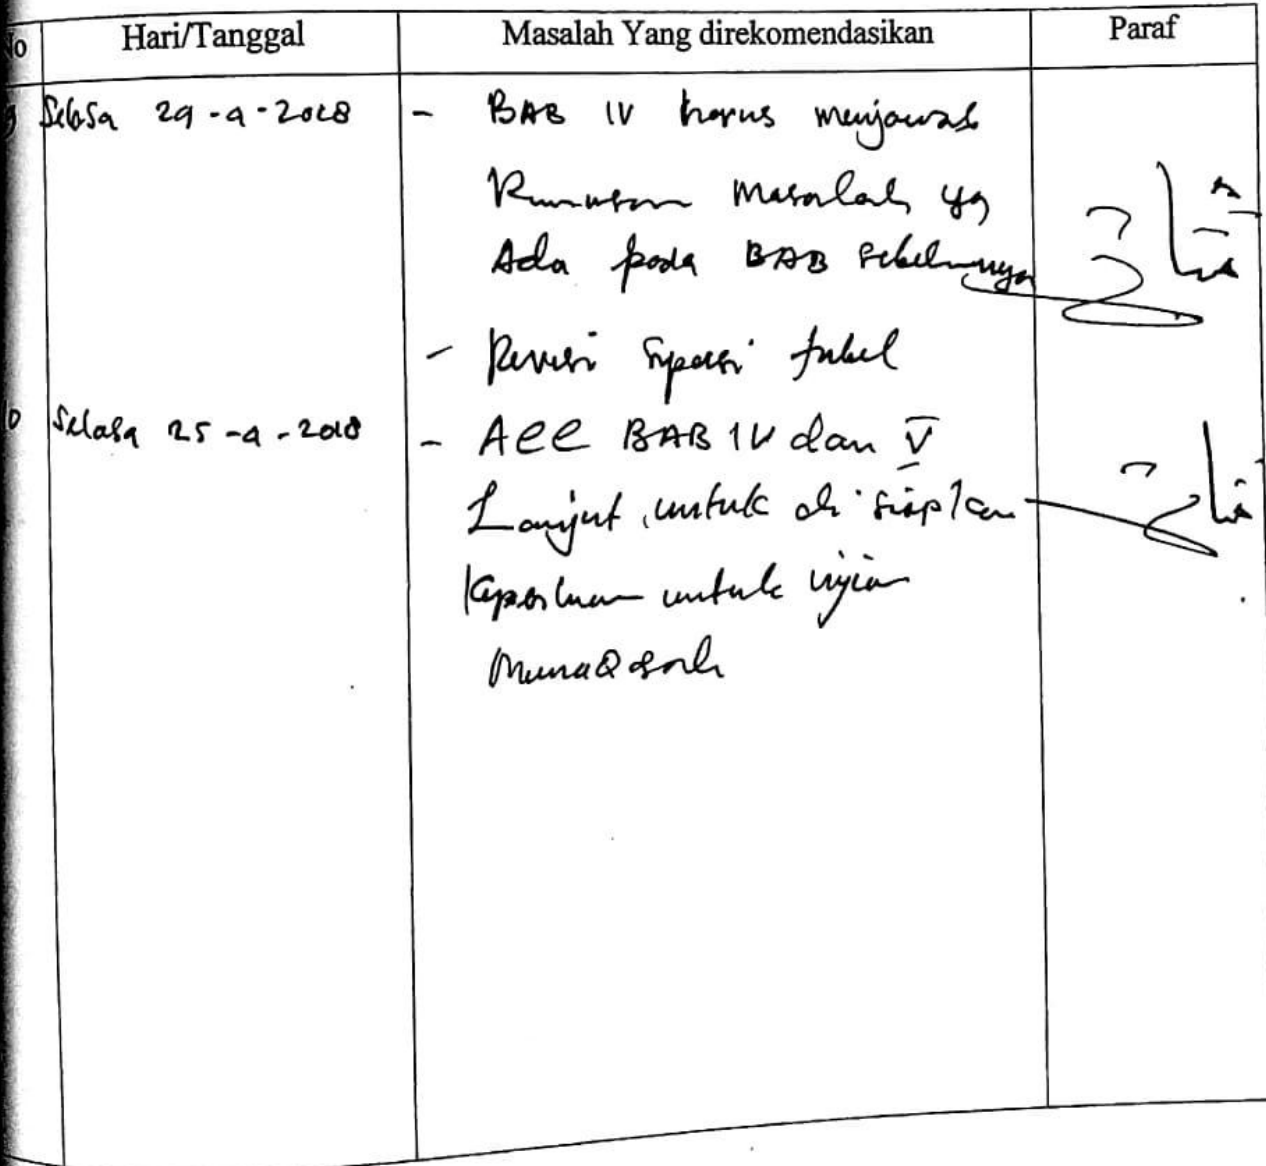 No Hari/Tanggal Masalah Yang direkomendasikan Paraf
9 Selasa 24-9-2018 - BAB IV harus menjawab
Rumusan masalah yg
Ada pada BAB sebelumnya
- Revisi spasi tabel
10 Selasa 25-9-2018 - Acc BAB IV dan V
Lanjut, untuk di siapkan
Keperluan untuk ujian
MunaQasah